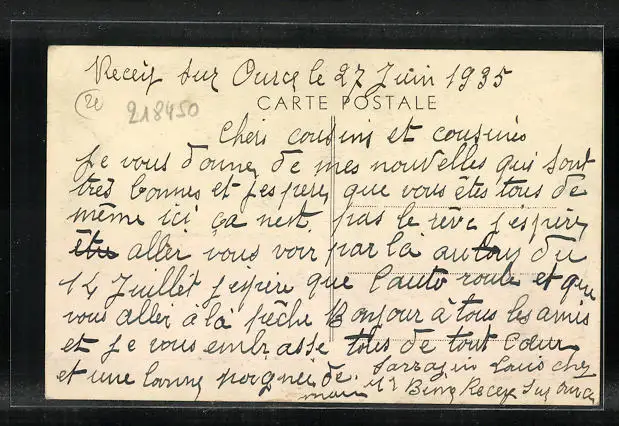 Recey sur Ource le 27 Juin 1935
20
218450
CARTE POSTALE
Chers cousins et cousines
Je vous donne de mes nouvelles qui sont
très bonnes et J'espère que vous êtes tous de
même ici ça nest pas le rêve J'espère
aller vous voir par là du
14 Juillet J'espère que l'auto roule et que
vous aller à la pêche Bonjour à tous les amis
et Je vous embrasse tous de tout Cœur
et une bonne poignei de Sarrazin Louis chez
main Mr Recey Sur Ource